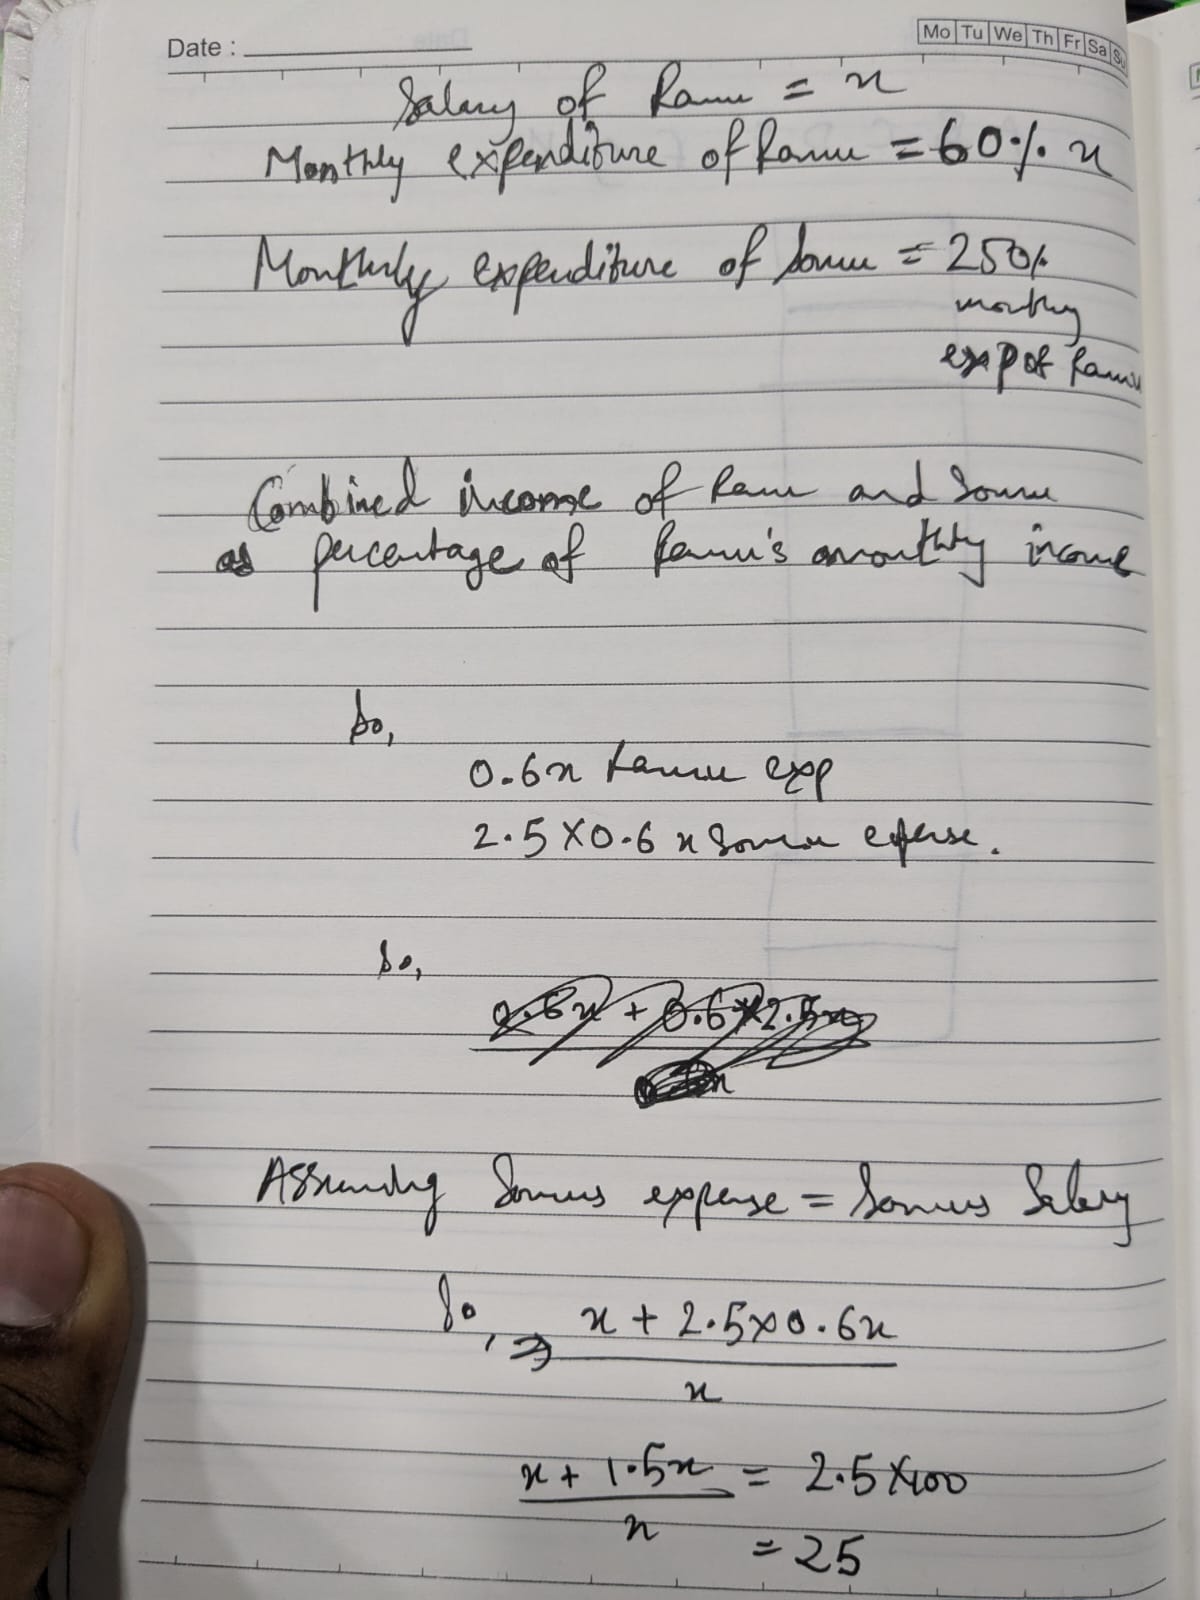 Date :
Mo Tu We Th Fr Sa Su
Salary of Ramu = x
Monthly expenditure of Ramu = 60% x
Monthly expenditure of Somu = 250%
monthly
exp of Ramu
Combined income of Ramu and Somu
as percentage of Ramu's monthly income
So,
0.6x Ramu exp
2.5 X 0.6 x Somu expense.
So,
0.6x + 0.6 X 2.5x
x
Assuming Somus expense = Somus Salary
So, ⇒ x + 2.5 x 0.6x
x
x + 1.5x = 2.5 X 100
x
= 25